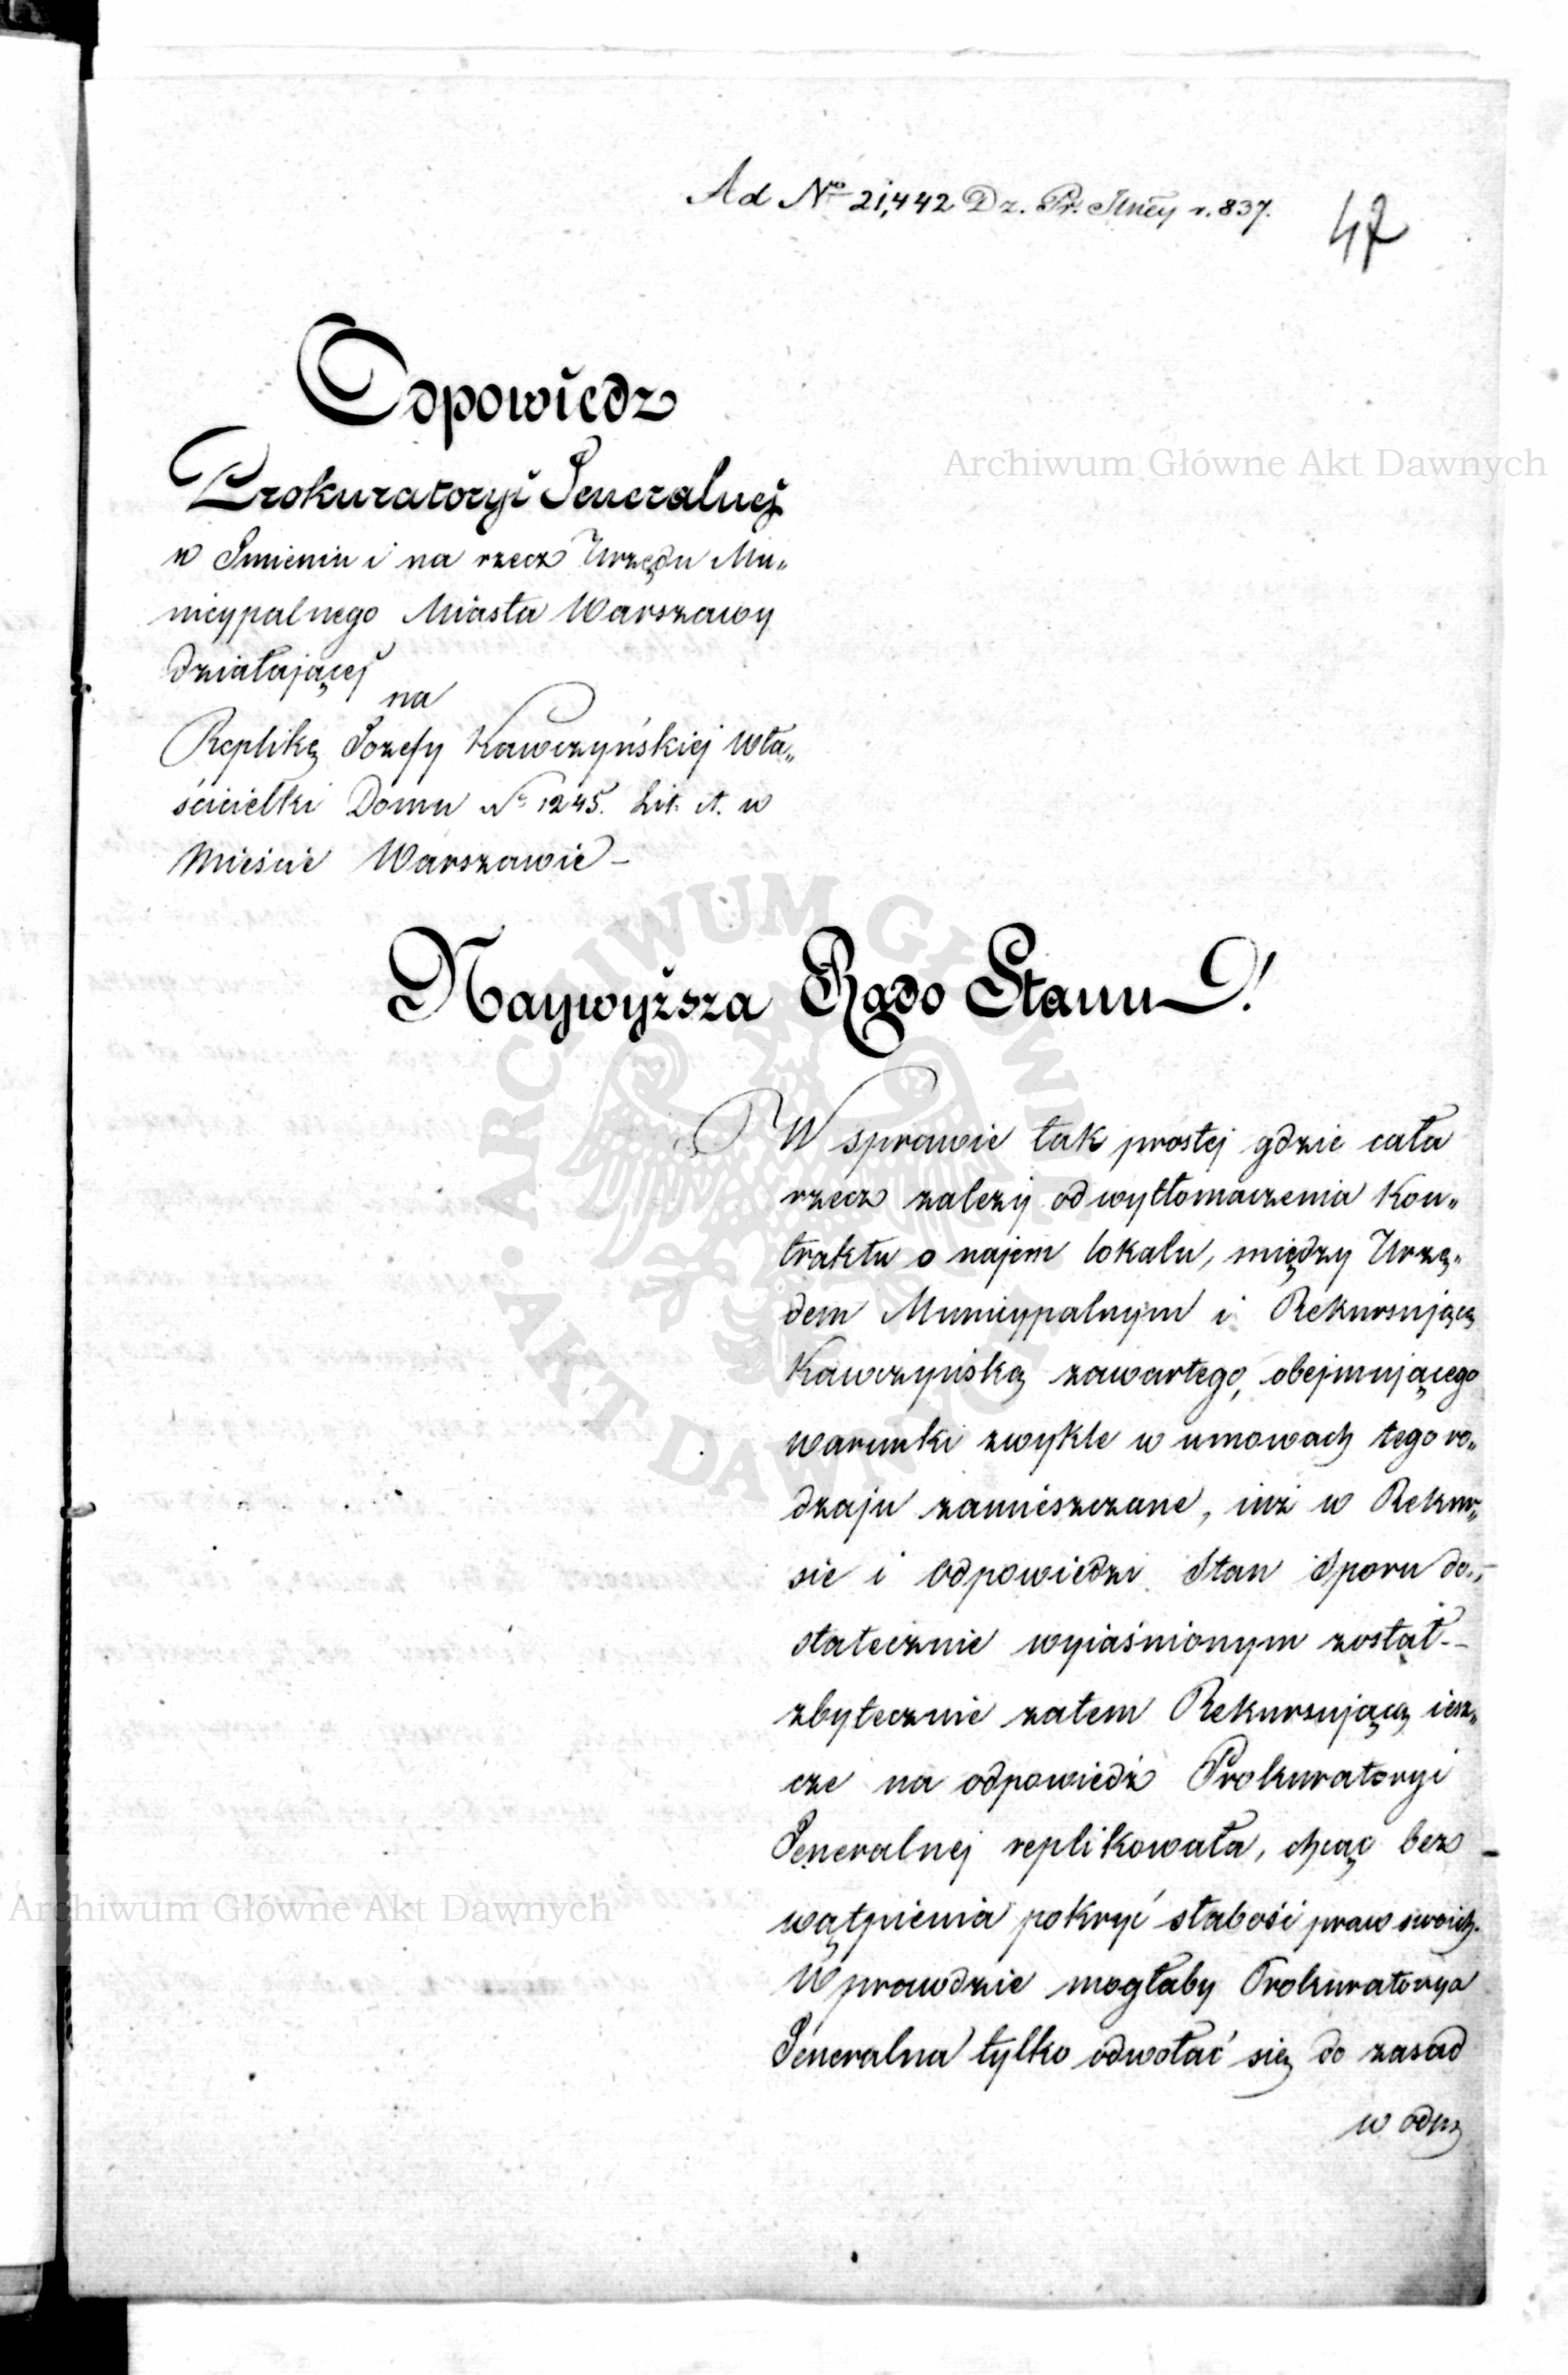 Ad Nro 21,442 Dz. Pr. Jlney r. 837.
47
Odpowiedz
Prokuratoryi Jeneralnej
w Imieniu i na rzecz Urzędu Mu„
nicypalnego Miasta Warszawy
działającej
na
Replikę Jozefy Kawczyńskiej Wła„
ścicielki Domu Nr 1245. Lit. A. w
Mieście Warszawie –
Naywyższa Rado Stanu!
W sprawie tak prostej gdzie cała
rzecz zależy od wytłomaczenia Kon„
traktu o najem lokalu, między Urzę„
dem Municypalnym i Rekursującą
Kawczyńską zawartego, obejmującego
warunki zwykle w umowach tego ro„
dzaju zamieszczane, iuż w Rekur„
sie i Odpowiedzi Stan Sporu do„
statecznie wyiaśnionym został –
zbytecznie zatem Rekursującą iesz„
cze na odpowiedź Prokuratoryi
Jeneralnej replikowała, chcąc bez
wątpienia pokryć słabość praw swoich.
Wprawdzie mogłaby Prokuratorya
Jeneralna tylko odwołać się do zasad
w odp
Archiwum Główne Akt Dawnych
Archiwum Główne Akt Dawnych
ARCHIWUM GŁÓWNE AKT DAWNYCH